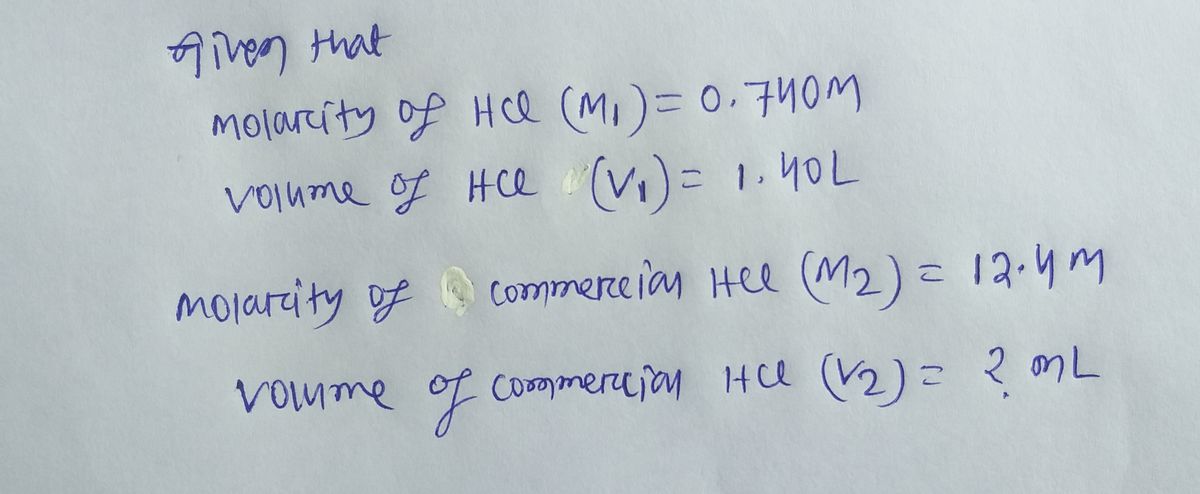 Given that
Molarcity of HCl (M₁) = 0.740M
volume of HCl (V₁) = 1.40L
Molarcity of commercial HCl (M2) = 12.4 M
volume of commercial HCl (V2) = ? mL